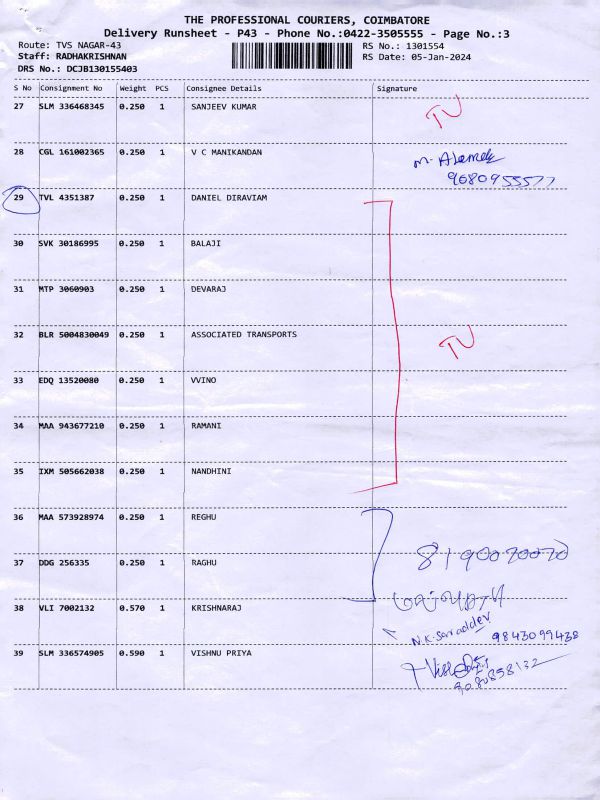 THE PROFESSIONAL COURIERS, COIMBATORE
Delivery Runsheet - P43 - Phone No.:0422-3505555 - Page No.:3
Route: TVS NAGAR-43 RS No.: 1301554
Staff: RADHAKRISHNAN RS Date: 05-Jan-2024
DRS No.: DCJB130155403
S No Consignment No Weight PCS Consignee Details Signature
27 SLM 336468345 0.250 1 SANJEEV KUMAR TU
28 CGL 161002365 0.250 1 V C MANIKANDAN
9080955577
29 TVL 4351387 0.250 1 DANIEL DIRAVIAM
30 SVK 30186995 0.250 1 BALAJI
31 MTP 3060903 0.250 1 DEVARAJ
32 BLR 5004830049 0.250 1 ASSOCIATED TRANSPORTS TU
33 EDQ 13520080 0.250 1 VVINO
34 MAA 943677210 0.250 1 RAMANI
35 IXM 505662038 0.250 1 NANDHINI
36 MAA 573928974 0.250 1 REGHU
37 DDG 256335 0.250 1 RAGHU 8190070070
38 VLI 7002132 0.570 1 KRISHNARAJ
9843099438
39 SLM 336574905 0.590 1 VISHNU PRIYA
9080858132